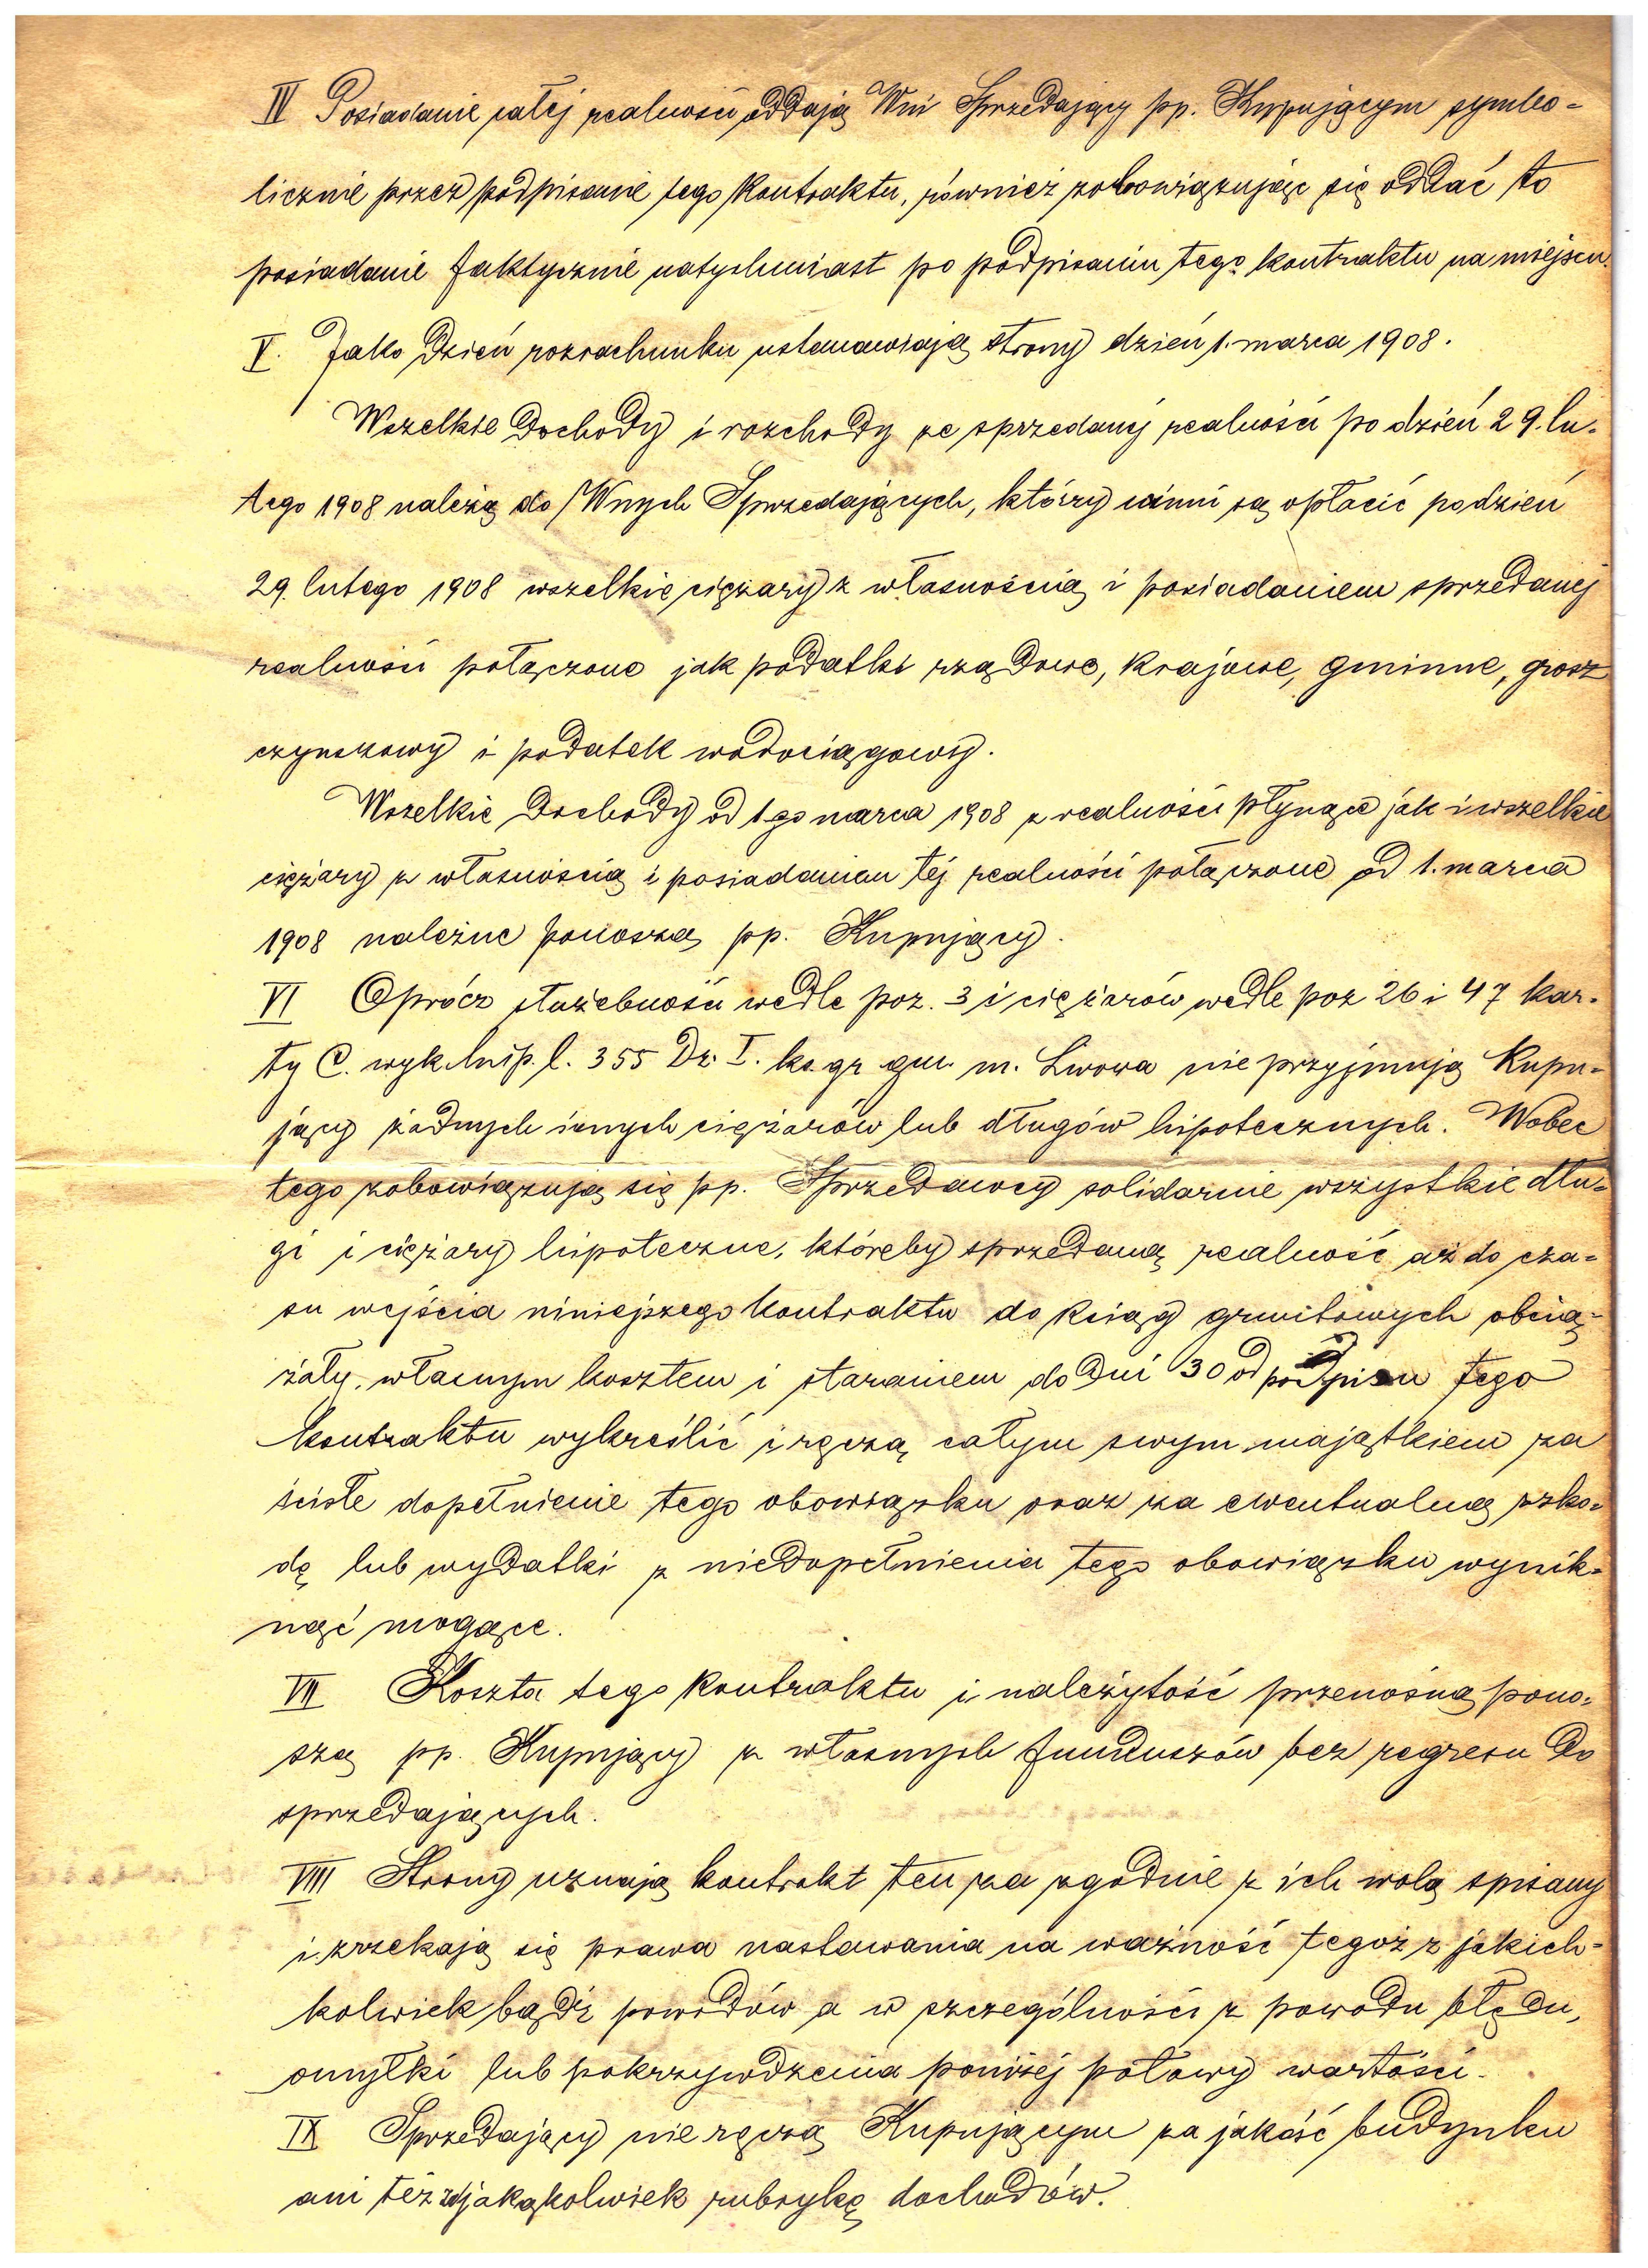 IV Posiadanie całej realności oddają Wni Sprzedający pp. Kupującym symbo-
licznie przez podpisanie tego kontraktu, również zobowiązując się oddać to
posiadanie faktycznie natychmiast po podpisaniu tego kontraktu na miejscu.
V. Jako dzień rozrachunku ustanawiają strony dzień 1. marca 1908.
Wszelkie dochody i rozchody ze sprzedanej realności po dzień 29. lu-
tego 1908 należą do Wnych Sprzedających, którzy winni są opłacić po dzień
29. lutego 1908 wszelkie ciężary z własnością i posiadaniem sprzedanej
realności połączone jak podatki rządowe, krajowe, gminne, grosz
czynszowy i podatek wodociągowy.
Wszelkie dochody od 1go marca 1908 z realności płynące jak i wszelkie
ciężary z własnością i posiadaniem tej realności połączone od 1. marca
1908 należne ponoszą pp. Kupujący.
VI Oprócz służebności wedle poz. 3 i ciężarów wedle poz 26 i 47 kar-
ty C. wyk. hip. l. 355 Dz. I. ks. gr. gm. m. Lwowa nie przyjmują Kupu-
jący żadnych innych ciężarów lub długów hipotecznych. Wobec
tego zobowiązują się pp. Sprzedawcy solidarnie wszystkie dłu-
gi i ciężary hipoteczne, któreby sprzedaną realność aż do cza-
su wejścia niniejszego kontraktu do ksiąg gruntowych obcią-
żały, własnym kosztem i staraniem do dni 30 od podpisu tego
kontraktu wykreślić i ręczą całym swym majątkiem za
ścisłe dopełnienie tego obowiązku oraz za ewentualną szko-
dę lub wydatki z niedopełnienia tego obowiązku wynik-
nąć mogące.
VII Koszta tego kontraktu i należytość przenośną pono-
szą pp. Kupujący z własnych funduszów bez regresu do
sprzedających.
VIII Strony uznają kontrakt ten za zgodnie z ich wolą spisany
i zrzekają się prawa nastawania na ważność tegoż z jakich-
kolwiek bądź powodów a w szczególności z powodu błędu,
omyłki lub pokrzywdzenia poniżej połowy wartości.
IX Sprzedający nie ręczą Kupującym za jakość budynku
ani też za jakąkolwiek rubrykę dochodów.